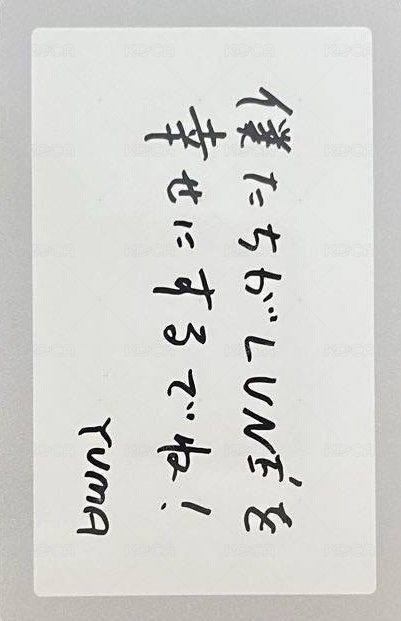 僕たちがLUNÉを
幸せにするでね!
YUMA